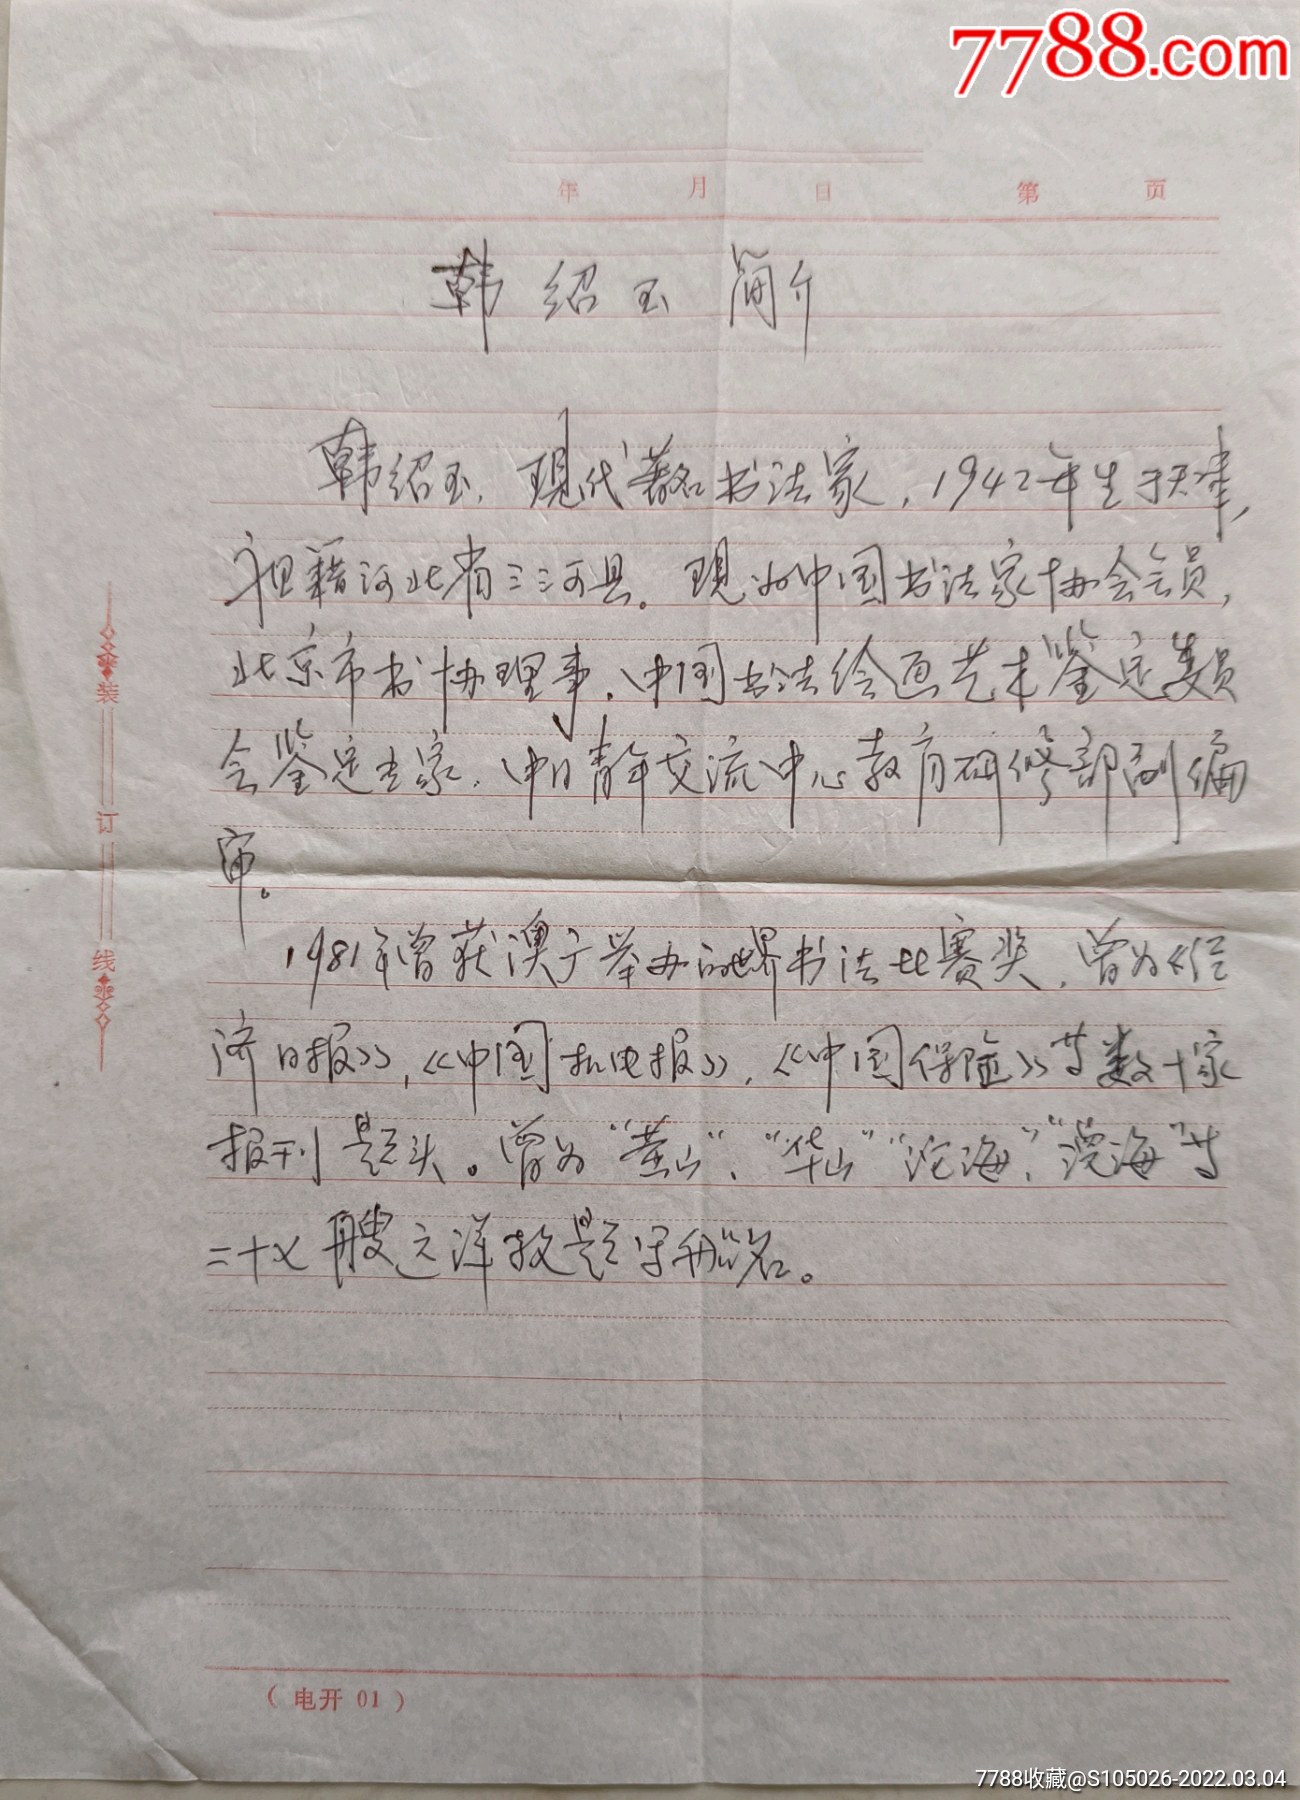 7788.com
年 月 日 第 页
韩绍玉简介
韩绍玉，现代著名书法家，1942年生于天津，
祖籍河北省三河县。现为中国书法家协会会员，
北京市书协理事，中国书法绘画艺术鉴定委员
会鉴定专家，中日青年交流中心教育研修部副编
审。
1981年曾获澳门举办的世界书法比赛奖，曾为《经
济日报》，《中国机电报》，《中国保险》等数十家
报刊题头。曾为“黄山”、“华山”“沱海”、“滨海”等
二十七艘远洋救题写船名。
装订线
(电开 01)
7788收藏@S105026-2022.03.04